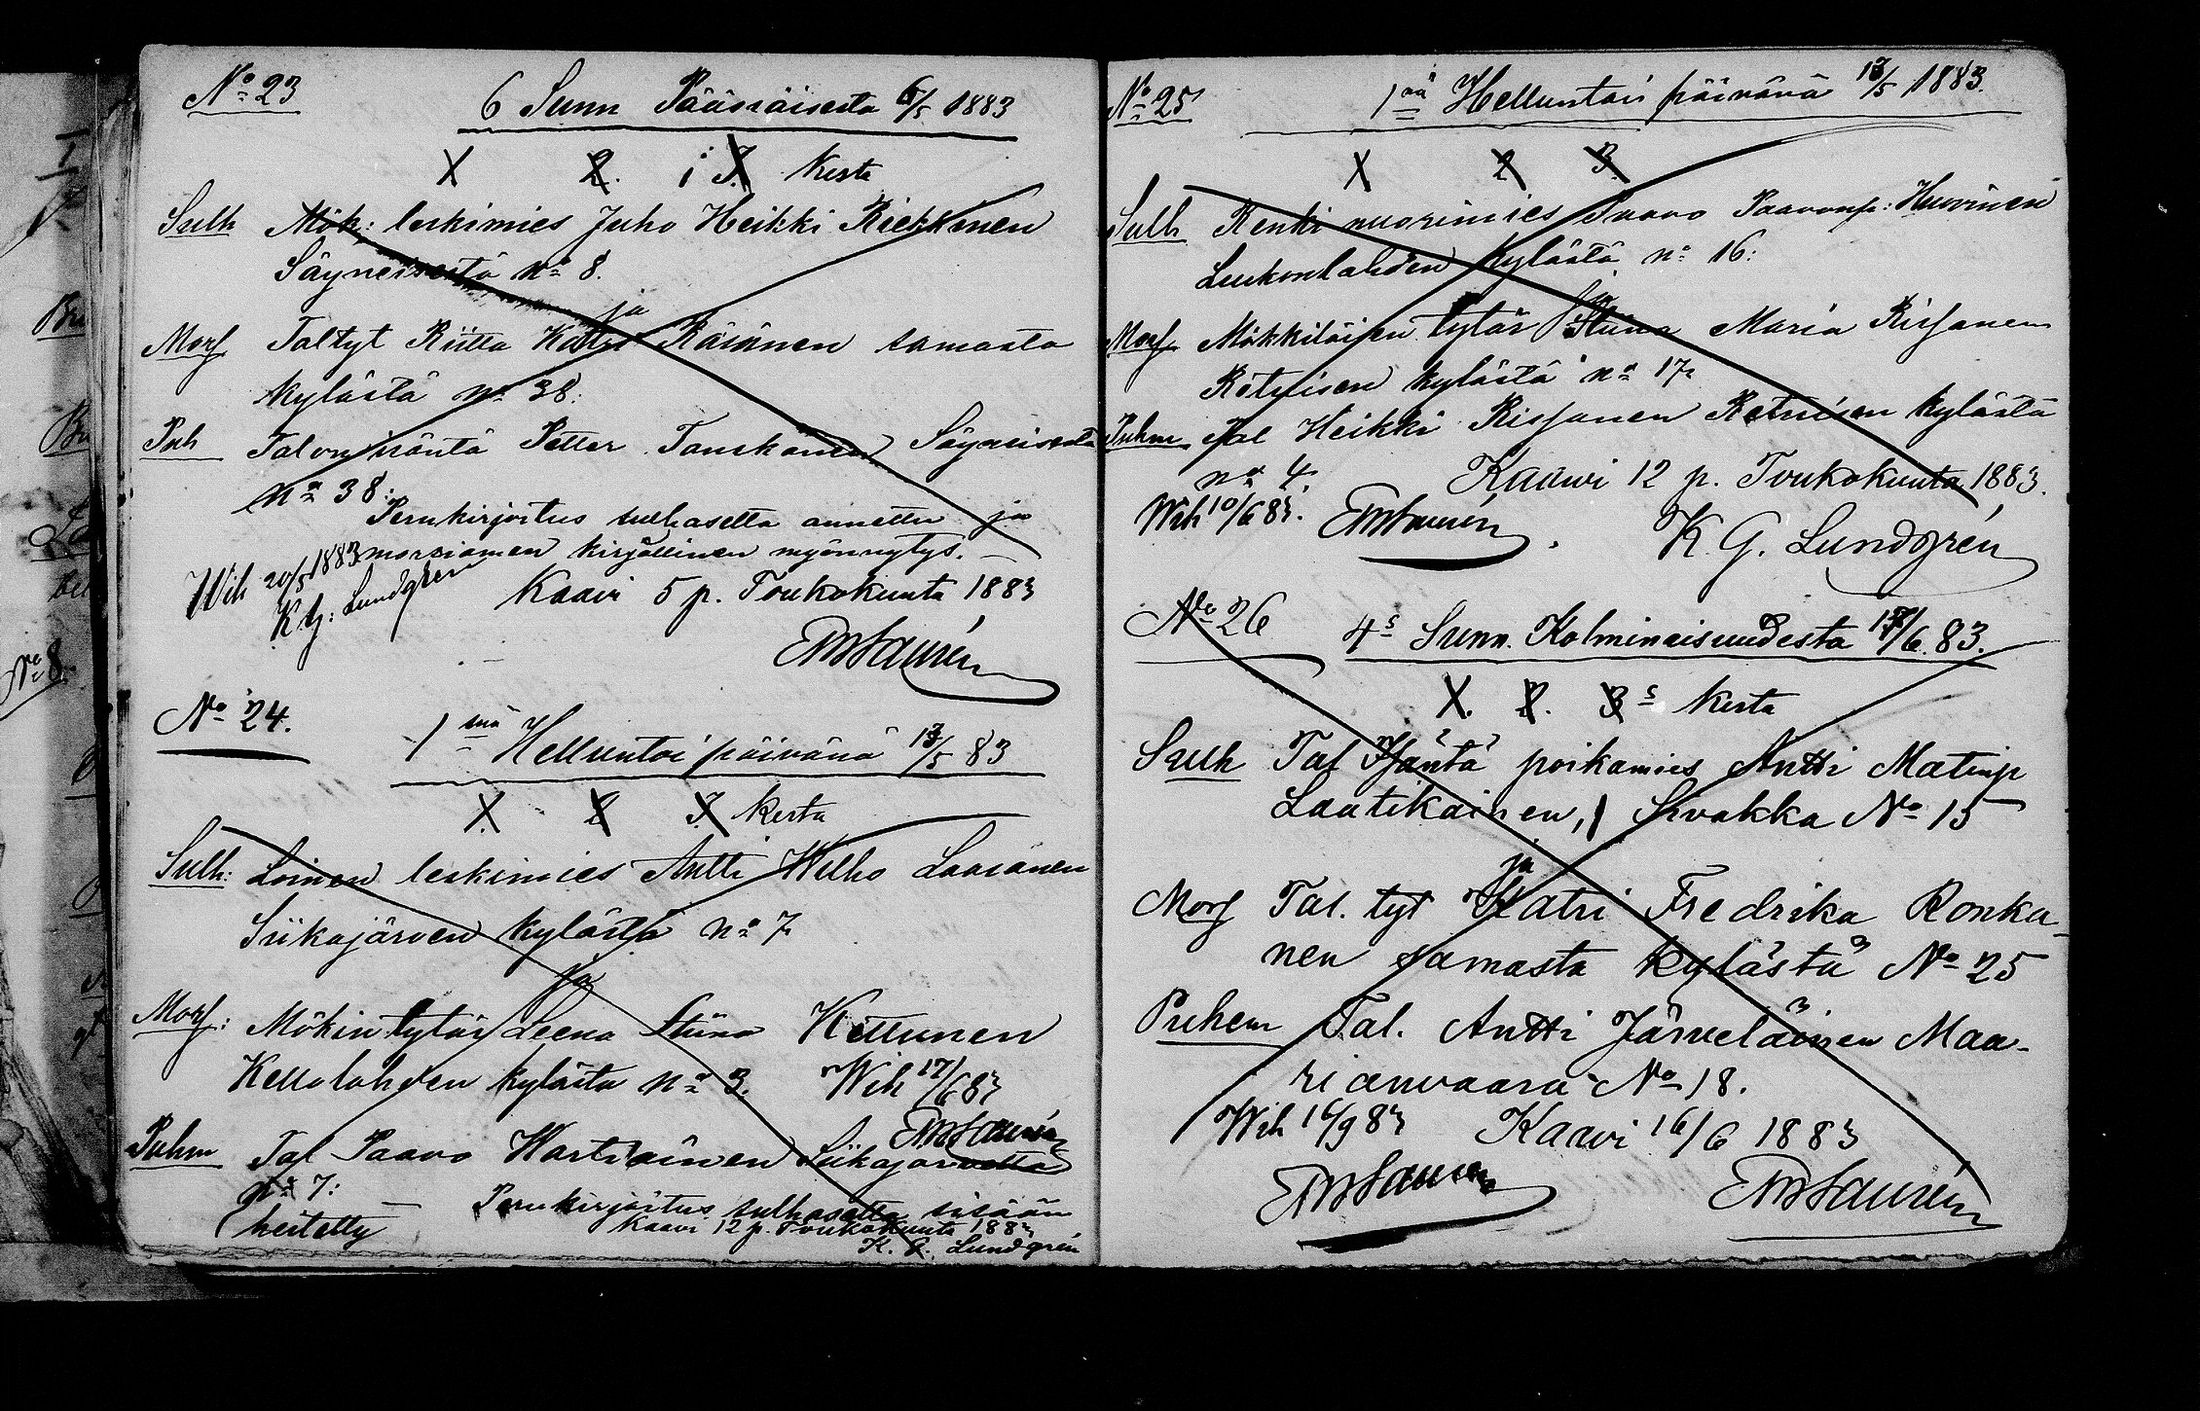 No 23
6 Sunn Pääsiäisestä 6/5 1883
1 2. i 3. kerta
Sulh Mök: leskimies Juho Heikki Riekkinen
Säyneisestä no 8.
ja
Morf Taltyt Riitta Katri Räsänen samasta
kylästä no 38:
Puh Talon isäntä Petter Tanskanen Säyneisestä
no 38:
Perukirjoitus sulhaselta annettu ja
morsiamen kirjallinen myönnytys.
Wih 20/5 1883
K G: Lundgren
Kaavi 5 p. Toukokuuta 1883
No 24.
1 snä Helluntai päivänä 13/5 83
1. 2 3. kerta
Sulh: Loinen leskimies Antti Wilho Laasanen
Siikajärven kylästä no 7.
ja
Morf: Mökin tytär Leena Stiina Kettunen
Kellolahden kylästä no 3.
Wih 17/6 83
Puhm Tal Paavo Wartiainen Siikajärveltä
no 7:
Perukirjoitus sulhaselta sisään
heitetty
Kaavi 12 p. Toukokuuta 1883
K. G. Lundgrén
No 25
1nä Helluntai päivänä 13/5 1883.
1 2 3.
Sulh Renki nuorimies Paavo Paavonp: Huvinen
Luikonlahden kylästä no 16:
ja
Morf Mökkiläisen tytär Stiina Maria Rissanen
Retusen kylästä no 17.
Puhm Tal Heikki Rissanen Retusen kylästä
no 4.
Kaawi 12 p. Toukokuuta 1883.
Wih 10/6 83.
K. G. Lundgrén
No 26
4s Sunn. Kolminaisuudesta 17/6. 83.
1. 2. 3s kerta
Sulh Tal Isäntä poikamies Antti Matinp
Laatikainen, Sivakka No 15
ja
Morf Tal. tyt Katri Fredrika Ronka-
nen samasta kylästä No 25
Puhem Tal. Antti Järveläinen Maa-
rianvaara No 18.
Wih 16/9 83
Kaavi 16/6 1883